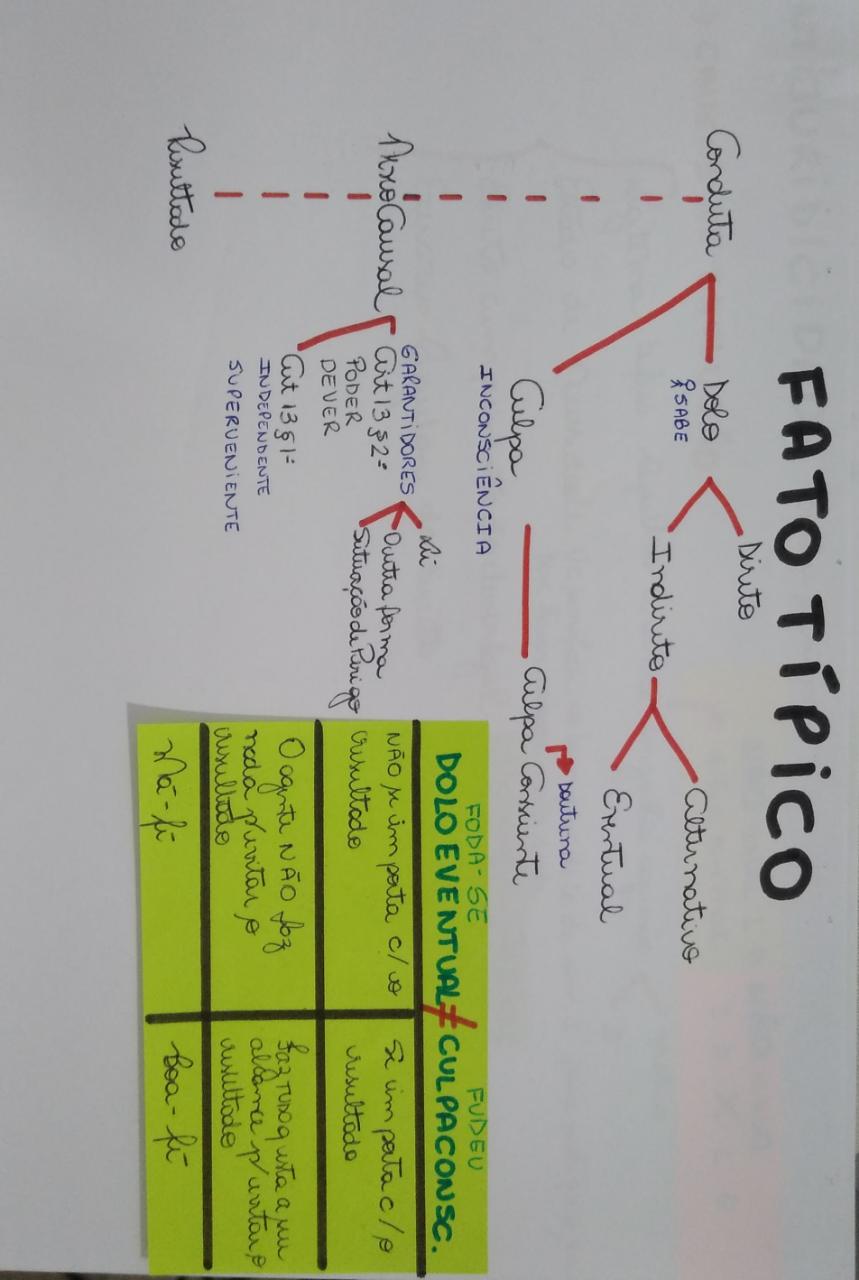 FATO TÍPICO
Conduta
Dolo
SABE
Direto
Indireto
Alternativo
Eventual
Culpa
INCONSCIÊNCIA
Culpa Consciente
Doutrina
Nexo Causal
GARANTIDORES
Art 13 § 2º
PODER
DEVER
Lei
Outra forma
Situação de Perigo
Art 13 § 1º
INDEPENDENTE
SUPERVENIENTE
Resultado
FODA-SE
FUDEU
DOLO EVENTUAL ≠ CULPA CONSC.
NÃO se importa c/ o
resultado
Se importa c/ o
resultado
O agente NÃO faz
nada p/ evitar o
resultado
Faz TUDO q esta a seu
alcance p/ evitar o
resultado
Má-fé
Boa-fé